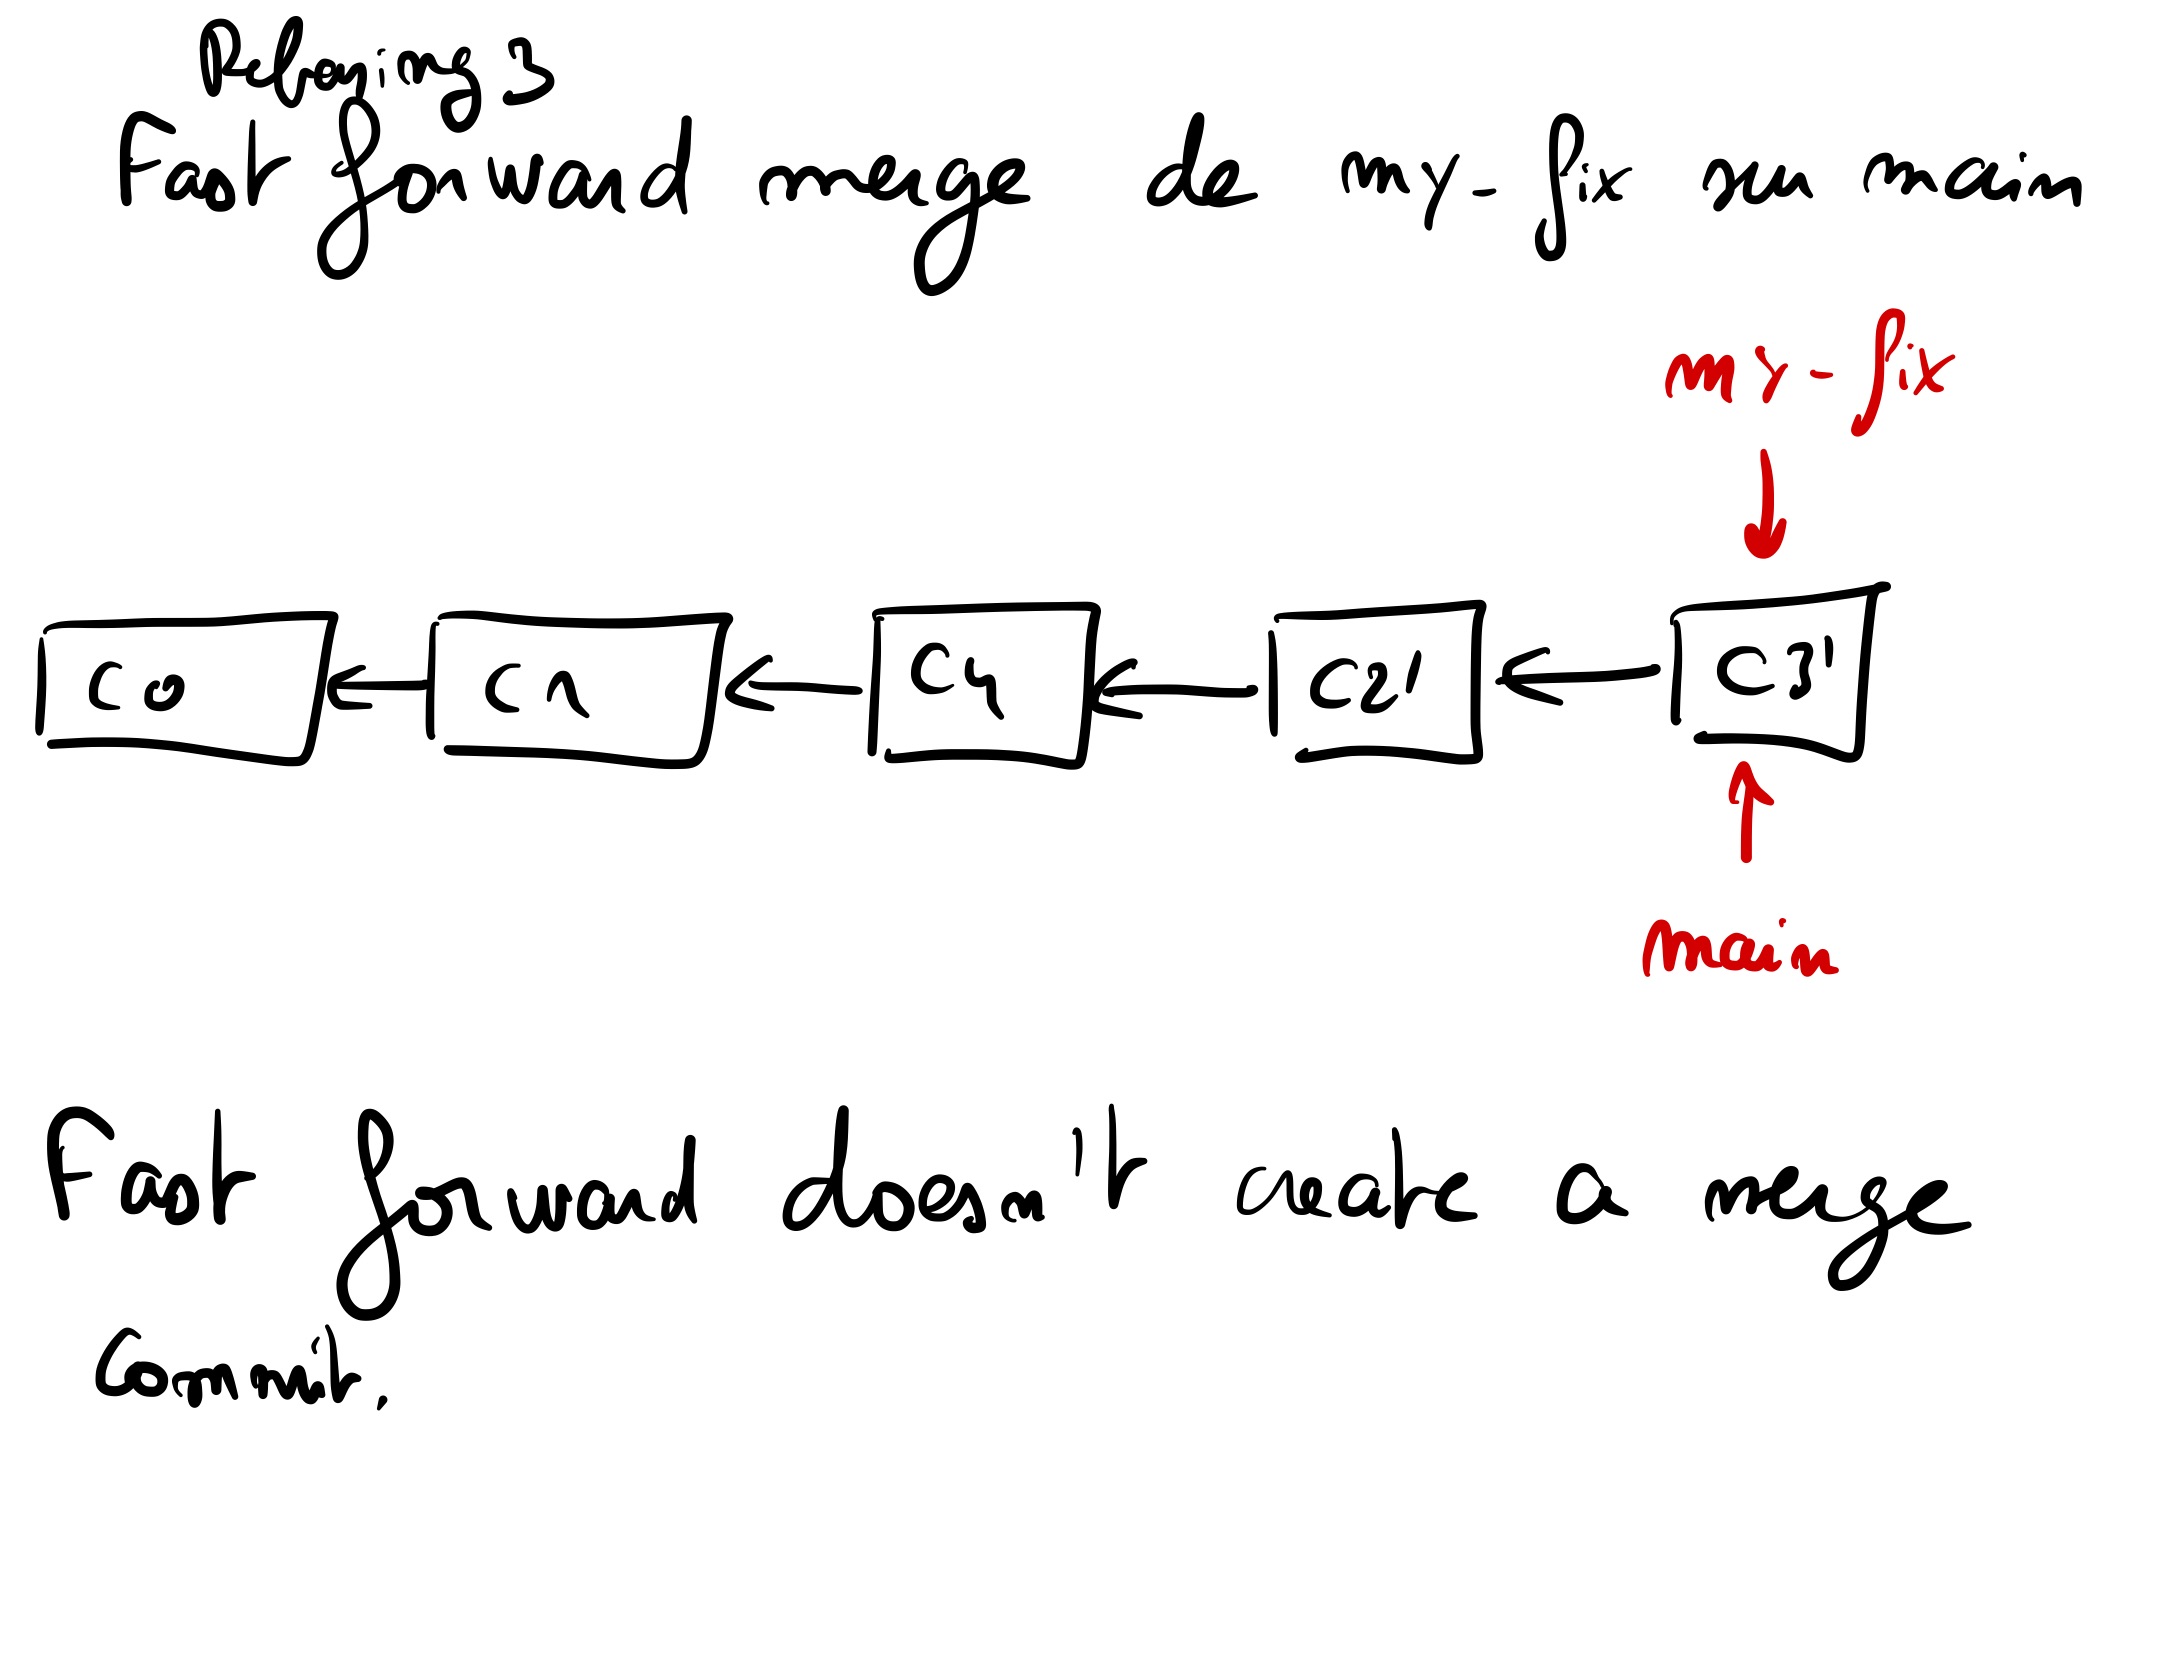 Rebasing 3
Fast forward merge de my-fix sur main
my-fix
C0 C1 C4 C2' C3'
main
Fast forward doesn't create a merge
commit.